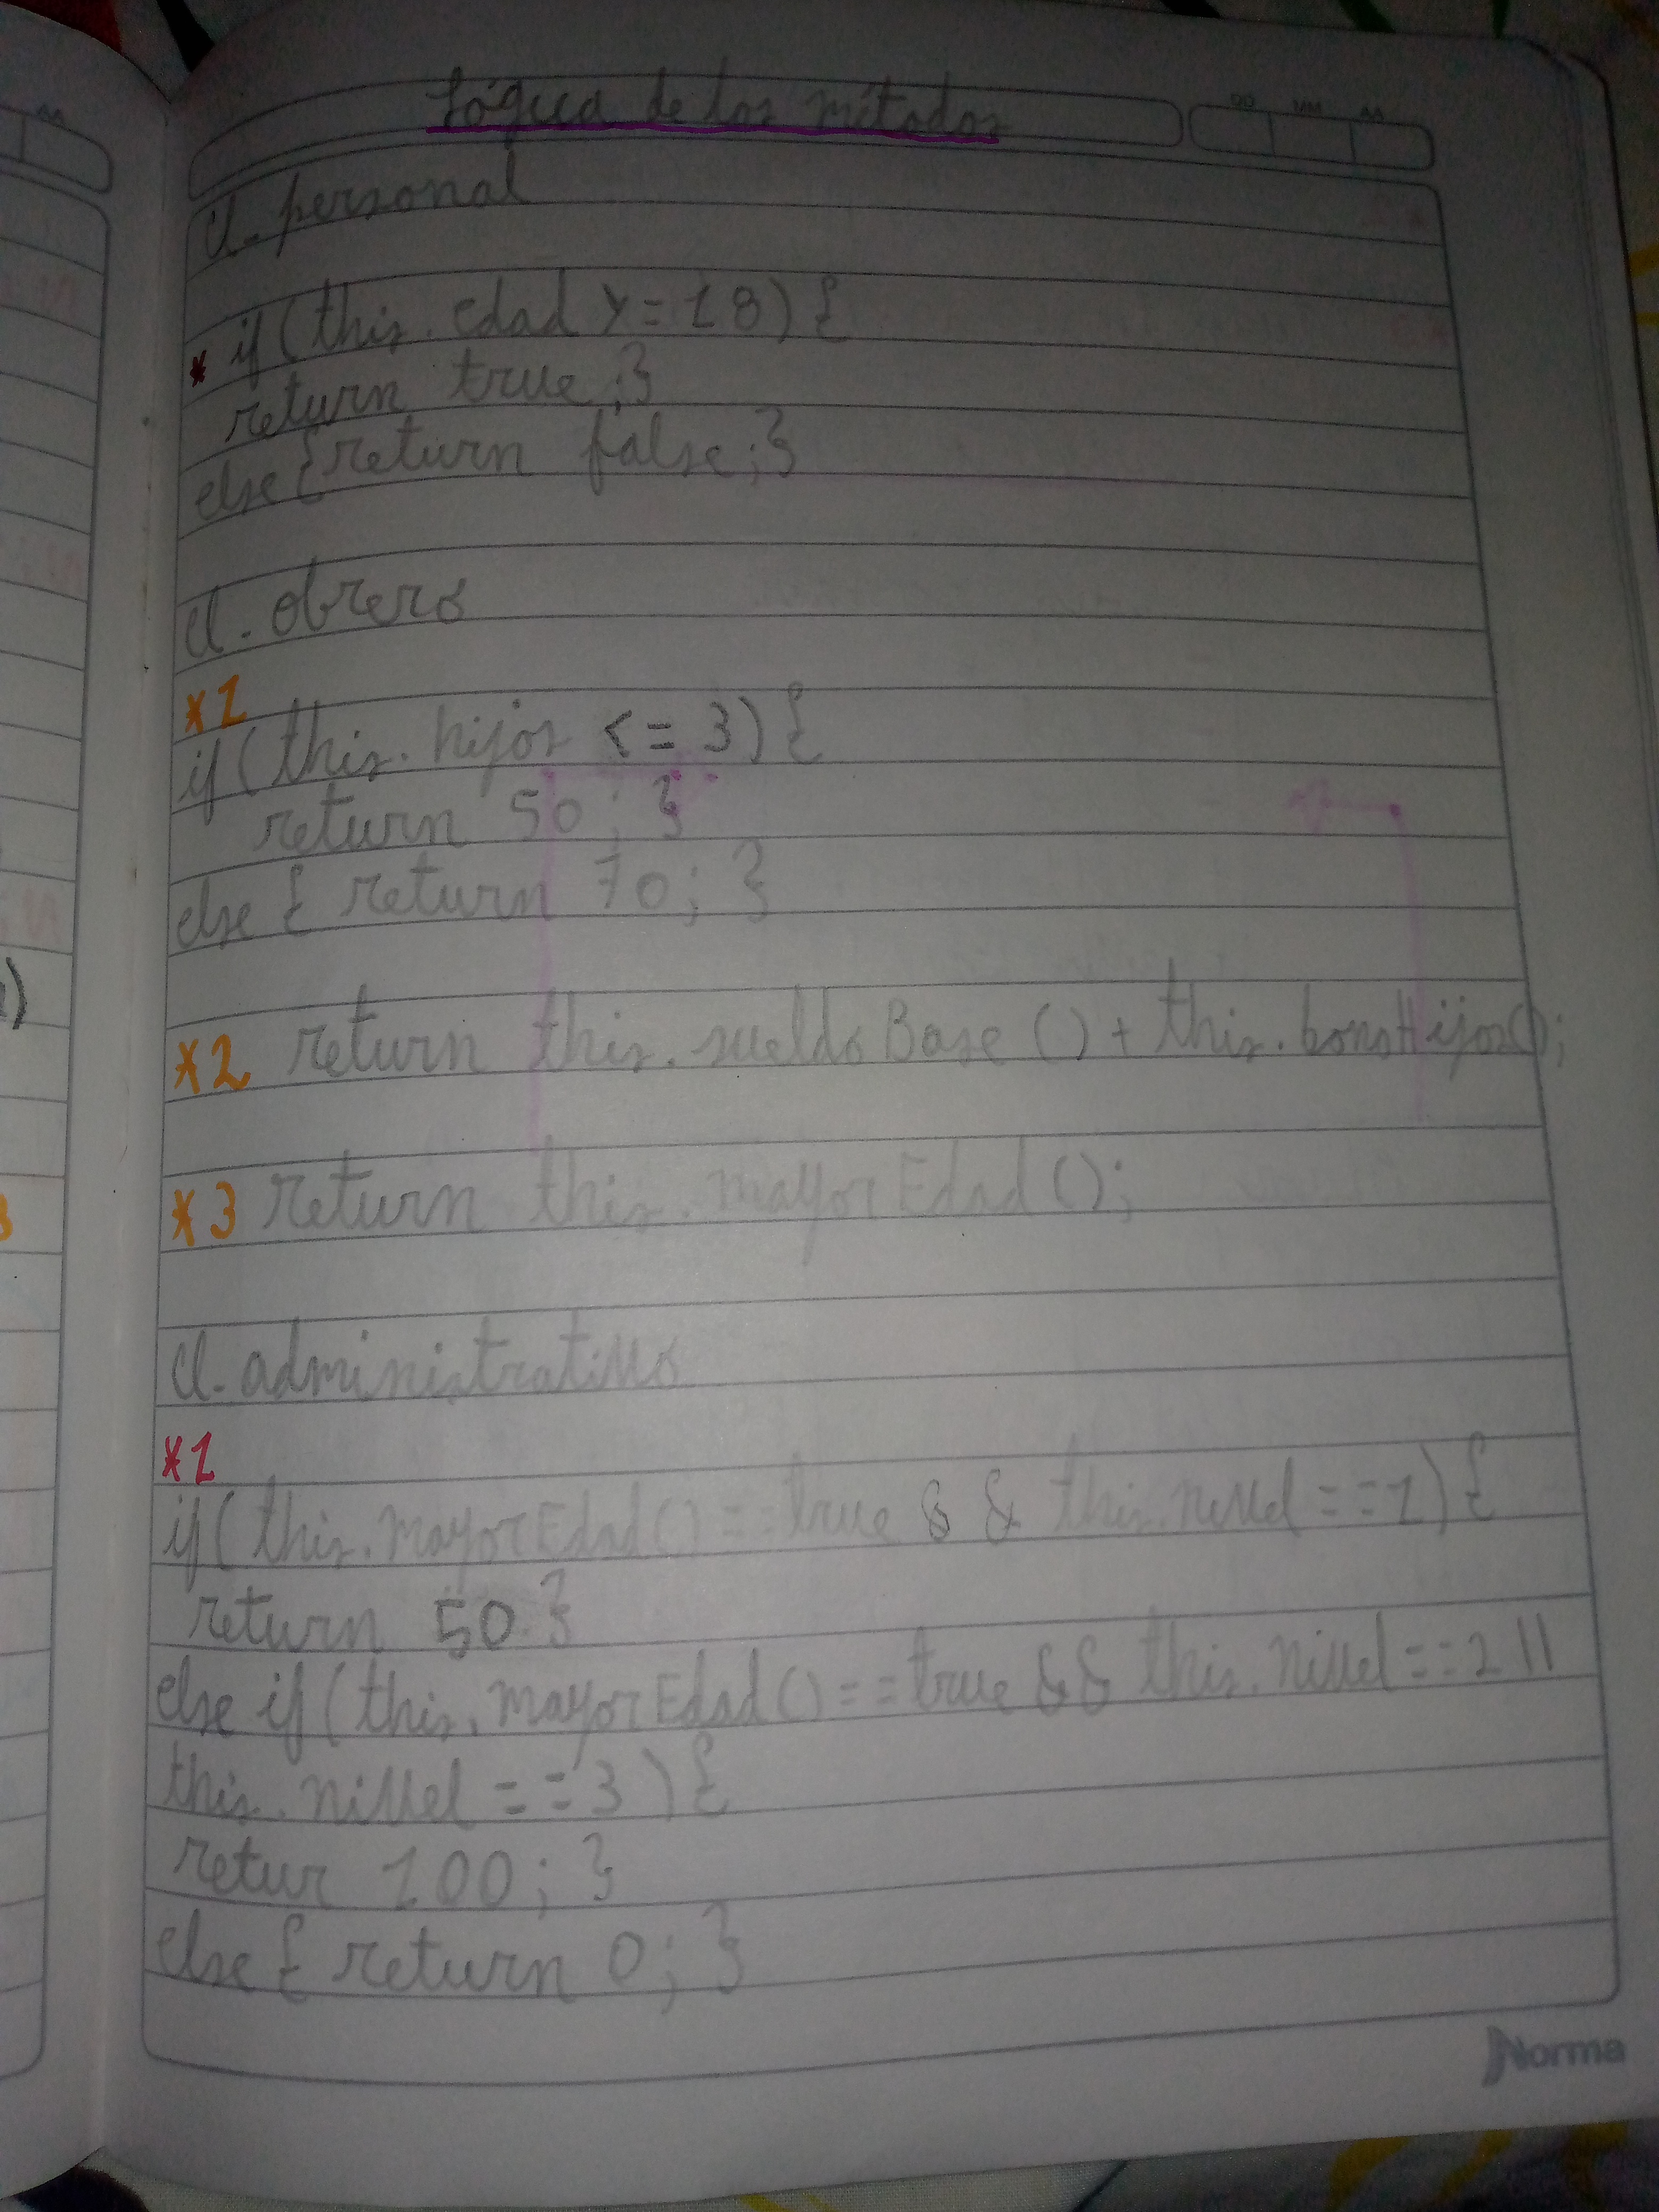 Lógica de los métodos
DD MM AA
cl. personal
* if (this. edad >= 18) {
return true ; }
else { return false ; }
cl. obrero
*1
if (this. hijos <= 3) {
return 50 ; }
else { return 70 ; }
*2 return this. sueldoBase () + this. bonoHijos();
*3 return this. mayorEdad ();
cl. administrativo
*1
if (this. mayorEdad () == true && this. nivel == 1) {
return 50 }
else if (this. mayorEdad () == true && this. nivel == 2 ||
this. nivel == 3 ) {
retur 100 ; }
else { return 0 ; }
Norma
AA
)
3